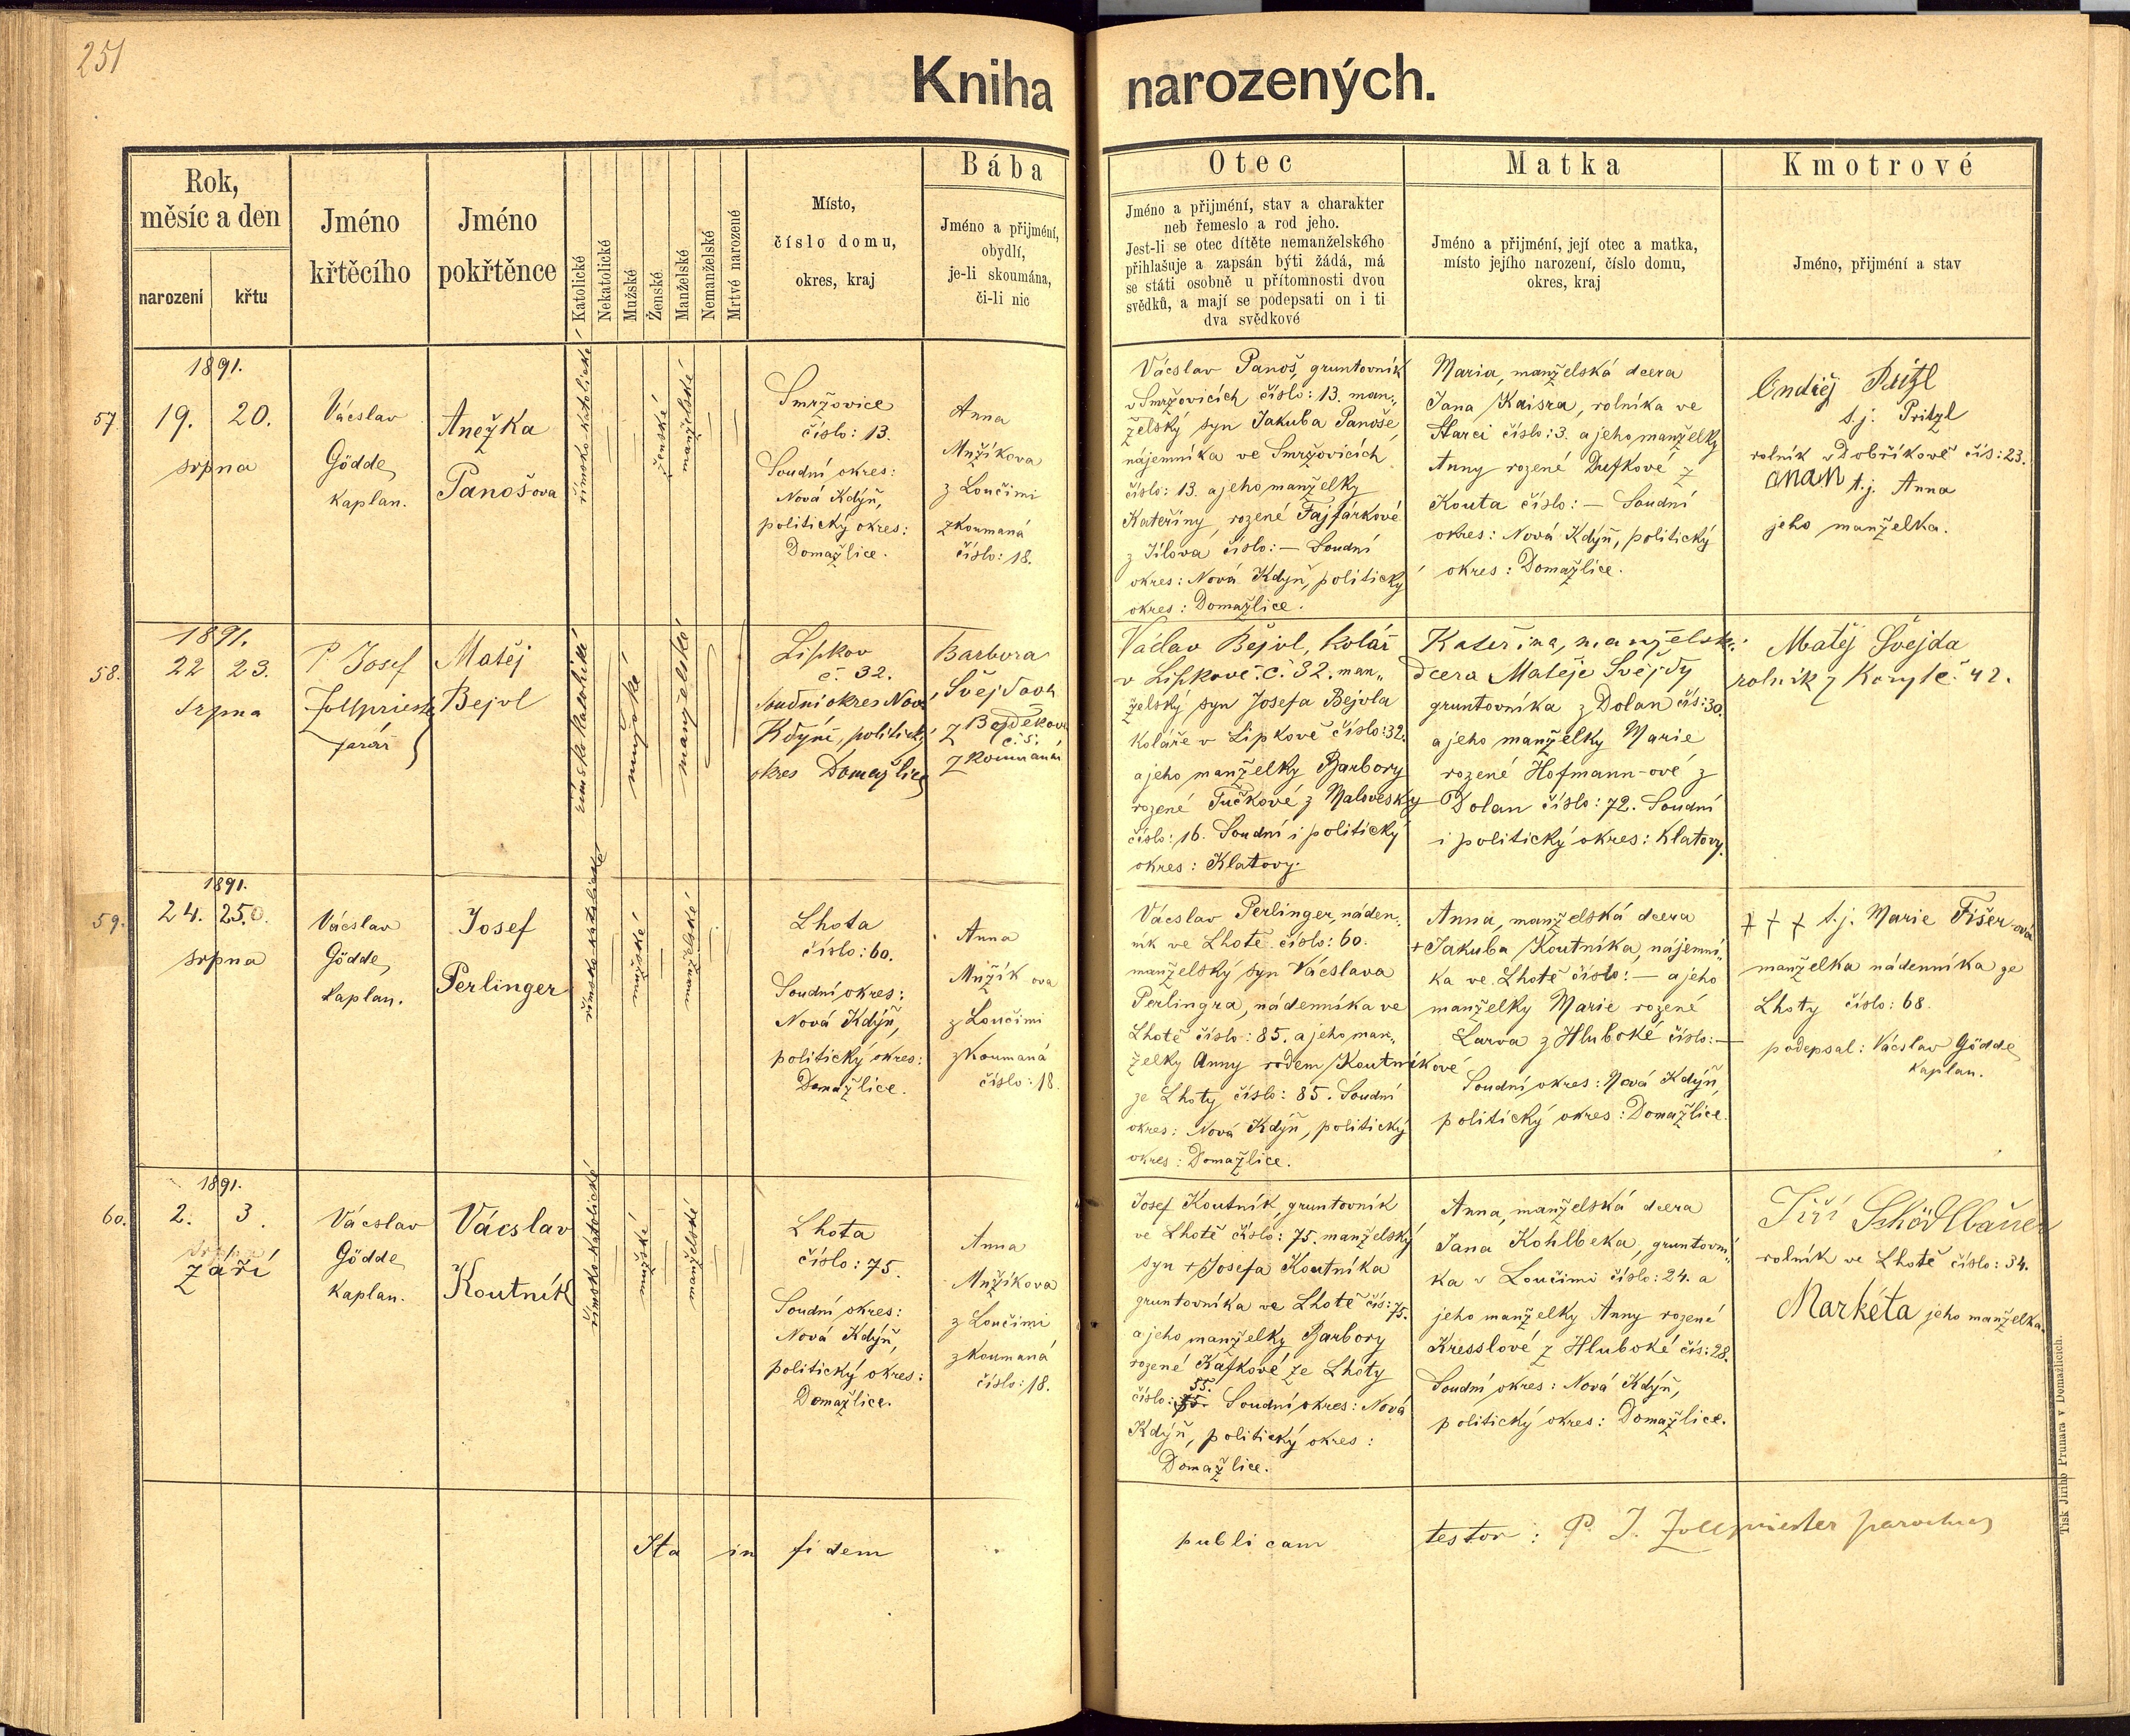 251
Kniha narozených.
Rok,
měsíc a den
narození
křtu
Jméno
křtěcího
Jméno
pokřtěnce
Katolické
Nekatolické
Mužské
Ženské
Manželské
Nemanželské
Mrtvé narozené
Místo,
číslo domu,
okres, kraj
Bába
Jméno a přijmění,
obydlí,
je-li skoumána,
či-li nic
Otec
Jméno a přijmění, stav a charakter
neb řemeslo a rod jeho.
Jest-li se otec dítěte nemanželského
přihlašuje a zapsán býti žádá, má
se státi osobně u přítomnosti dvou
svědků, a mají se podepsati on i ti
dva svědkové
Matka
Jméno a přijmění, její otec a matka,
místo jejího narození, číslo domu,
okres, kraj
Kmotrové
Jméno, přijmění a stav
57.
1891.
19. 20.
srpna
Vácslav
Gödde,
kaplan.
Anežka
Panošova
římsko-katolické
ženské
manželské
Smržovice
číslo: 13.
Soudní okres:
Nová Kdýň,
politický okres:
Domažlice.
Anna
Mužíkova
z Loučimi
zkoumaná
číslo: 18.
Vácslav Panoš, gruntovník
v Smržovicích číslo: 13. man„
želský syn Jakuba Panoše,
nájemníka ve Smržovicích
číslo: 13. a jeho manželky
Kateřiny, rozené Fajfárkové
z Jílova číslo: — Soudní
okres: Nová Kdýň, politický
okres: Domažlice.
Maria, manželská dcera
Jana Kaisra, rolníka ve
Starci číslo: 3. a jeho manželky
Anny rozené Dufkové z
Kouta číslo: — Soudní
okres: Nová Kdýň, politický
okres: Domažlice.
t.j. Pritzl
rolník v Dobříkově čís: 23.
anan t.j. Anna
jeho manželka.
58.
1891.
22 23.
srpna
P. Josef
Zollpriester
farář
Matěj
Bejvl
římsko katolické
mužské
manželské
Lipkov
č. 32.
soudní okres Nová
Kdyně, politický
okres Domažlice
Barbora
Švejdova
z Bezděkova
č. 5.
zkoumaná
Václav Bejvl, kolář
v Lipkově č. 32. man„
želský syn Josefa Bejvla
koláře v Lipkově číslo: 32.
a jeho manželky Barbory
rozené Tučkové z Malovesky
číslo: 16. Soudní i politický
okres: Klatovy.
Kateřina, manželská
dcera Matěje Švejdy
gruntovníka z Dolan čís: 30.
a jeho manželky Marie
rozené Hofmann-ové z
Dolan číslo: 72. Soudní
i politický okres: Klatovy.
Matěj Švejda
rolník z Koryt č. 42.
59.
1891.
24. 25.
srpna
Vácslav
Gödde,
kaplan.
Josef
Perlinger
římsko-katolické
mužské
manželské
Lhota
číslo: 60.
Soudní okres:
Nová Kdýň,
politický okres:
Domažlice.
Anna
Mužíkova
z Loučimi
zkoumaná
číslo: 18.
Vácslav Perlinger, náden„
ník ve Lhotě číslo: 60.
manželský syn Vácslava
Perlingra, nádenníka ve
Lhotě číslo: 85. a jeho man„
želky Anny rodem Koutníkové
ze Lhoty číslo: 85. Soudní
okres: Nová Kdýň, politický
okres: Domažlice.
Anna, manželská dcera
+ Jakuba Koutníka, nájemní„
ka ve Lhotě číslo: — a jeho
manželky Marie rozené
Larva z Hluboké číslo: —
Soudní okres: Nová Kdýň,
politický okres: Domažlice.
+ + + t.j. Marie Fišer-ová
manželka nádenníka ze
Lhoty číslo: 68.
podepsal: Vácslav Gödde,
kaplan.
60.
1891.
2. 3.
září
Vácslav
Gödde,
kaplan.
Vácslav
Koutník
římsko-katolické
mužské
manželské
Lhota
číslo: 75.
Soudní okres:
Nová Kdýň,
politický okres:
Domažlice.
Anna
Mužíkova
z Loučimi
zkoumaná
číslo: 18.
Josef Koutník, gruntovník
ve Lhotě číslo: 75. manželský
syn + Josefa Koutníka
gruntovníka ve Lhotě čís: 75.
a jeho manželky Barbory
rozené Kafkové ze Lhoty
číslo: 55. Soudní okres: Nová
Kdýň, politický okres:
Domažlice.
Anna, manželská dcera
Jana Kohlbeka, gruntovní„
ka v Loučimi číslo: 24. a
jeho manželky Anny rozené
Kresslové z Hluboké čís: 28.
Soudní okres: Nová Kdýň,
politický okres: Domažlice.
Jiří Schödlbauer
rolník ve Lhotě číslo: 34.
Markéta jeho manželka.
Ita in fidem publicam testor: P. J. Zollpriester parochus
Tisk Jiřího Prunara v Domažlicích.